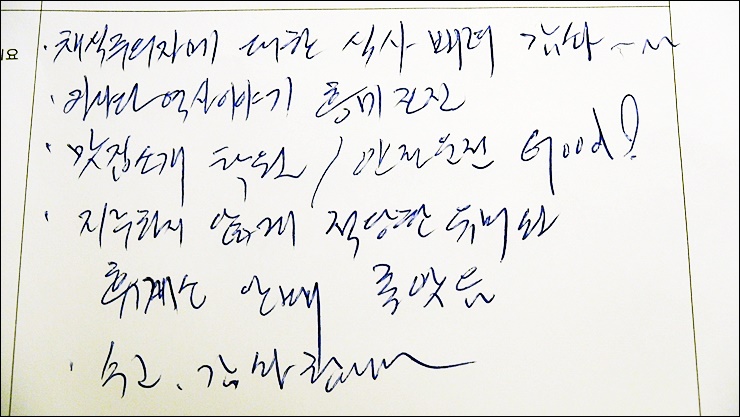 · 채식주의자에 대한 식사 배려 감사~~
· 캐나다 역사이야기 흥미진진
· 맛집소개 탁월 / 안전운전 Good!
· 지루하지 않게 적당한 유머와
휴게소 안배 좋았음
· 수고, 감사